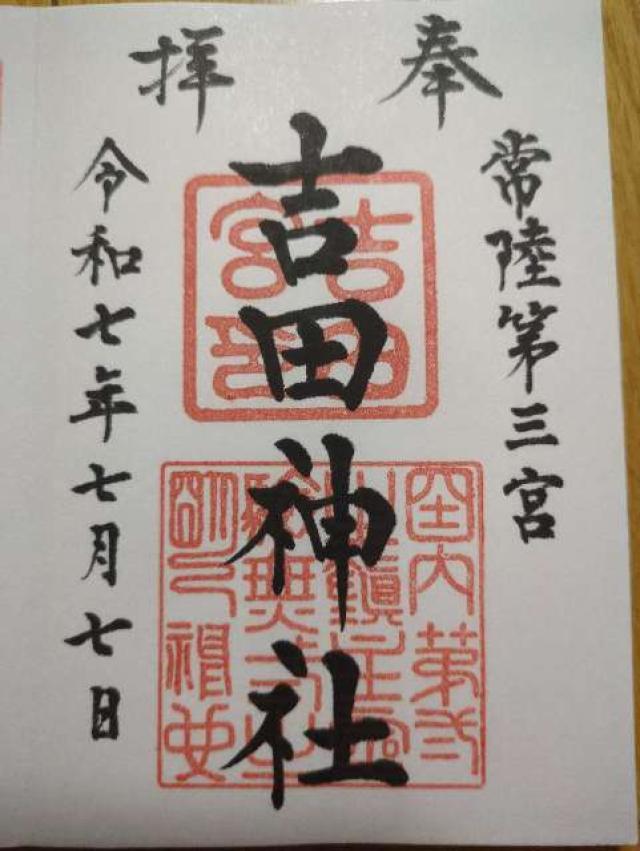 奉拝
常陸第三宮
吉田神社
令和七年七月七日
吉田宮印